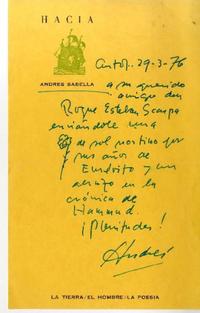 HACIA
Antof. 29-3-76
ANDRES SABELLA
a su querido
amigo don
Roque Esteban Scarpa
enviándole una
de sol nortino por
sus años de
y un
abrazo en la
crónica de
Hammud.
¡Plenitudes!
Andrés
LA TIERRA/EL HOMBRE/LA POESIA